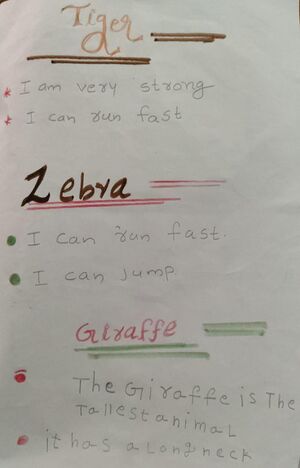 Tiger
I am very strong
I can run fast
Zebra
I can run fast.
I can Jump
Giraffe
The Giraffe is The
Tallest animal
it has a Long neck